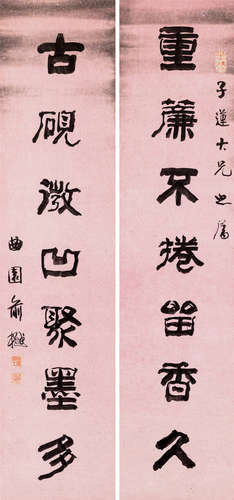 子蓮大兄之屬
重簾不捲畱香久
古硯微凹聚墨多
曲園俞樾